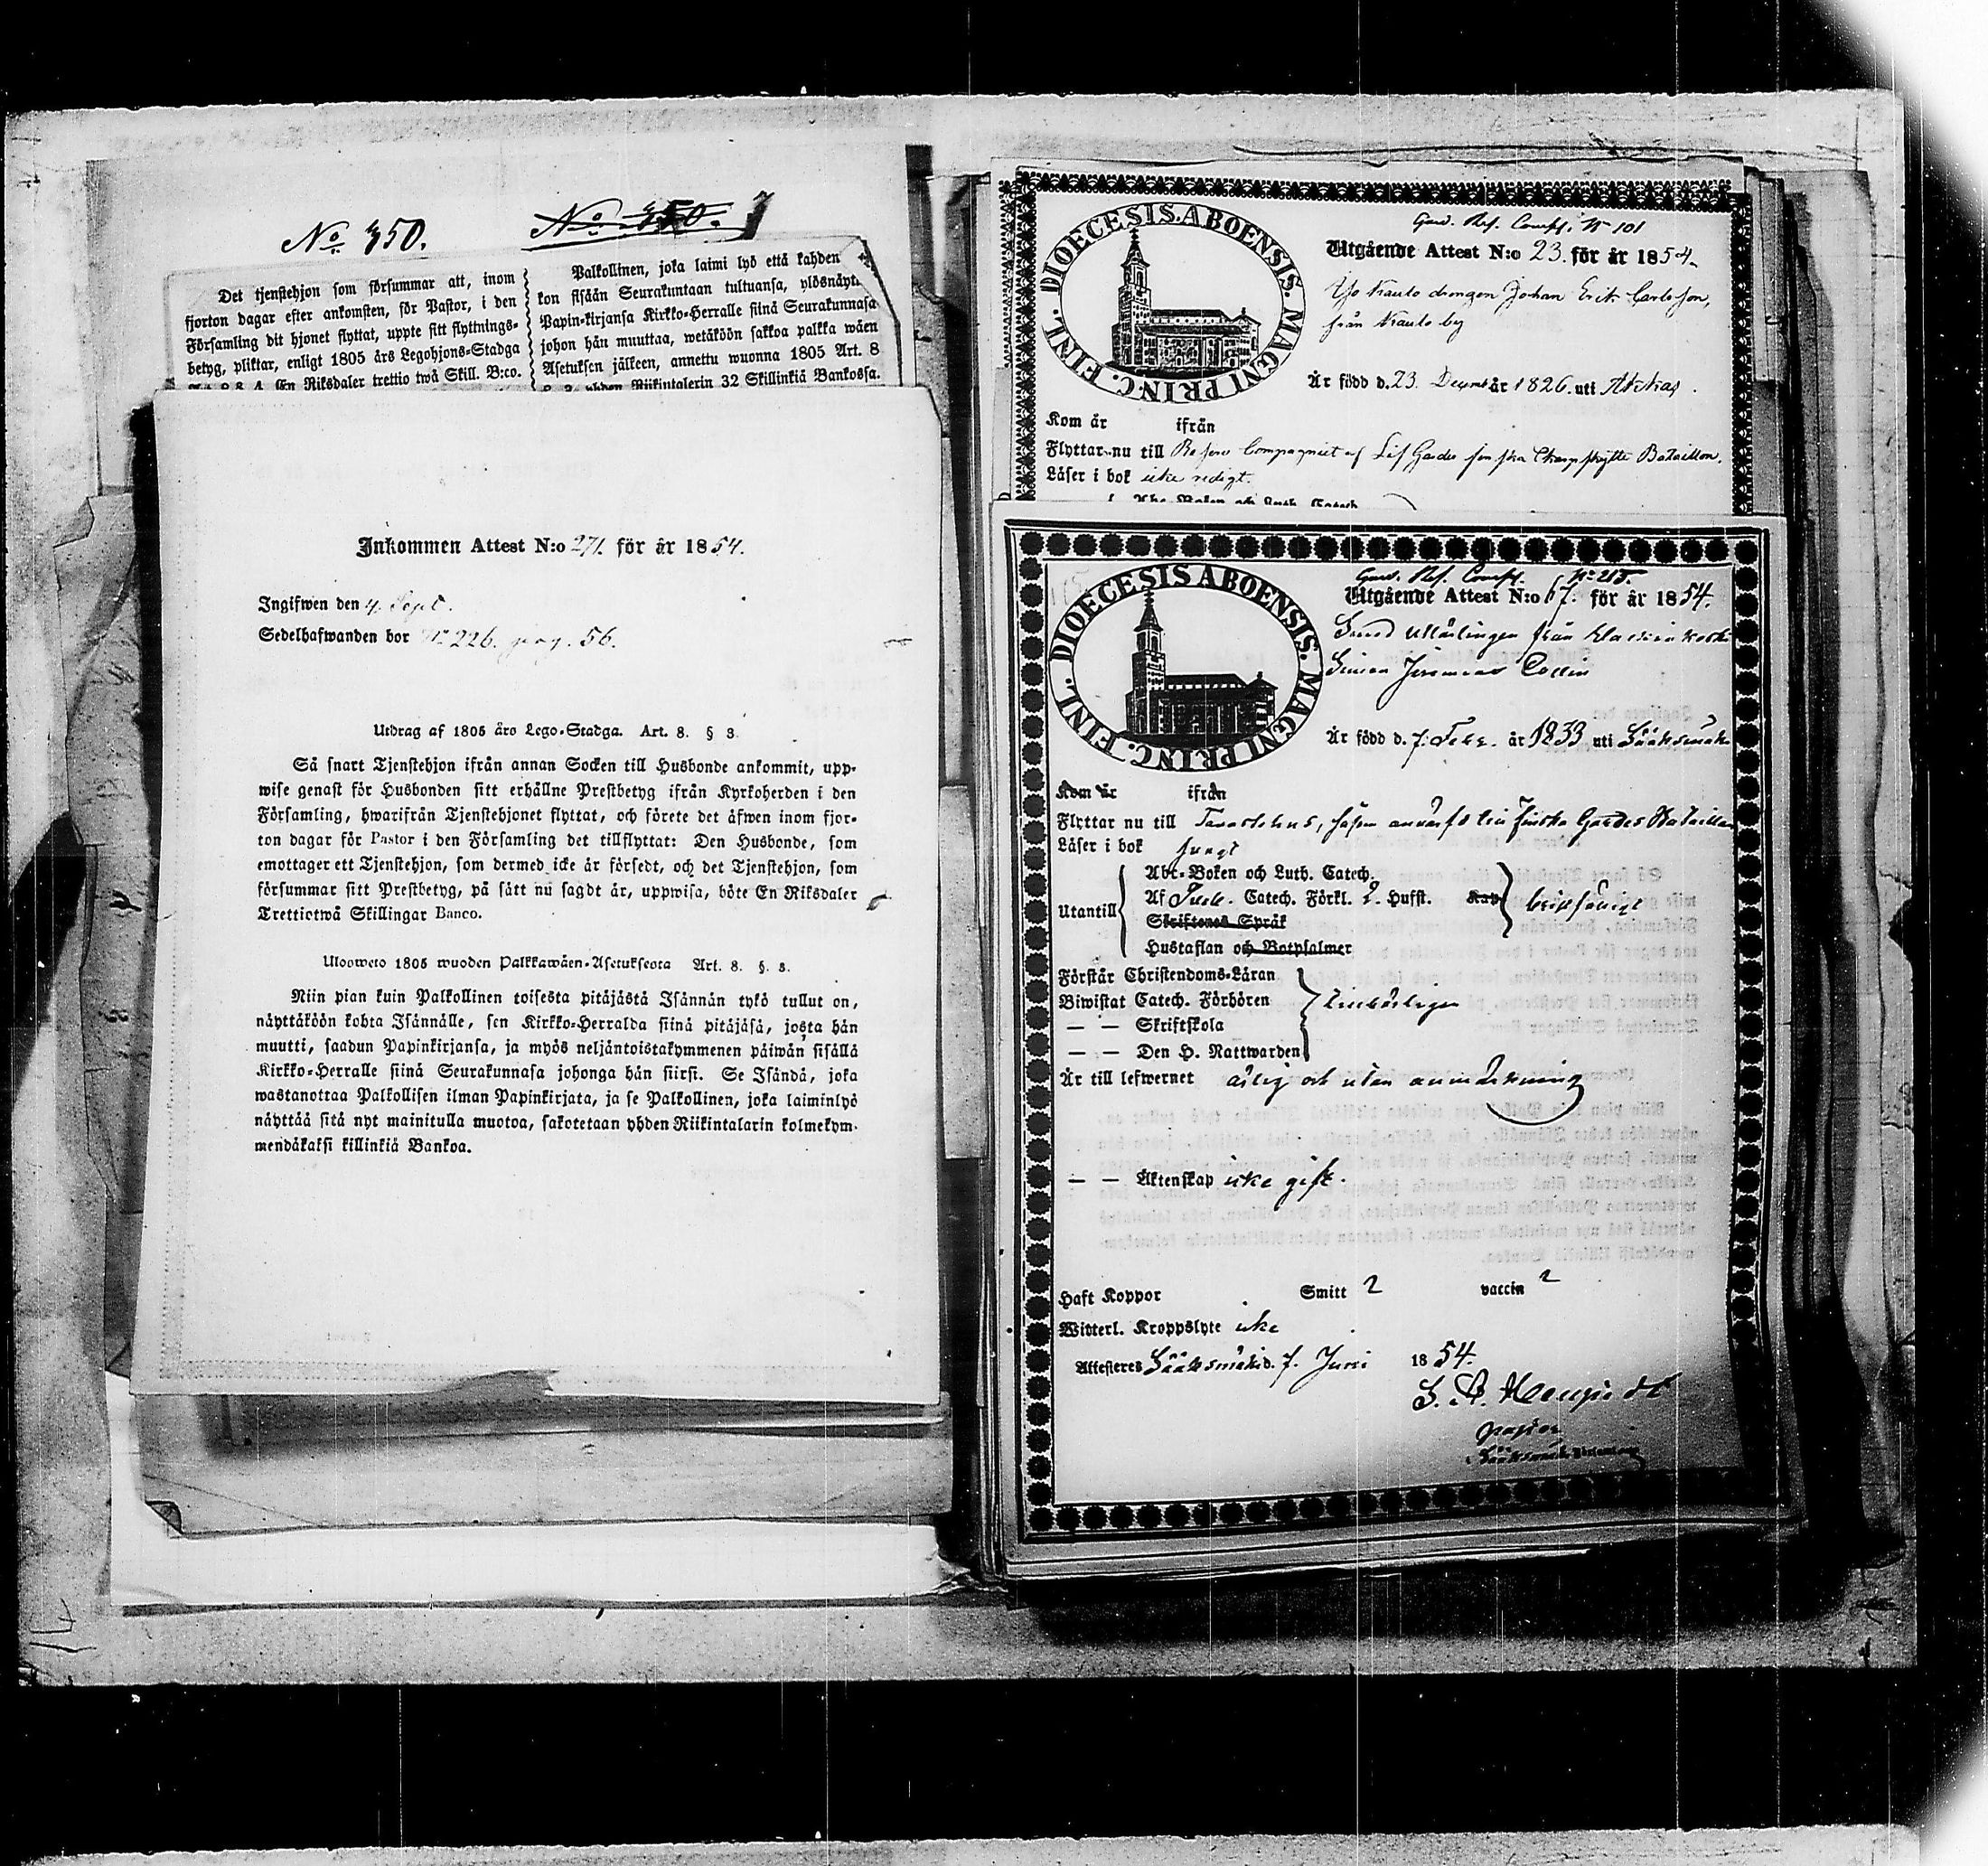 No. 350.
No. 350.
Det tjenstehjon som försummar att, inom
fjorton dagar efter ankomsten, för Pastor, i den
Församling dit hjonet flyttat, uppte sitt flyttnings-
betyg, pliktar, enligt 1805 års Legohjons-Stadga
§ 4. En Riksdaler trettio twå Skill. B:co.
Palkollinen, joka laimi lyö että kahden
kon sisään Seurakuntaan tultuansa, ylösnäytt
Papin-kirjansa Kirkko-Herralle siinä Seurakunnasa
johon hän muuttaa, wetäköön sakkoa palkka wäen
Asetuksen jälkeen, annettu wuonna 1805 Art. 8
yhden Riikintalerin 32 Skillinkiä Bankossa.
Inkommen Attest N:o 271. för år 1854.
Ingifwen den 4. Sept.
Sedelhafwanden bor No 226. pag. 56.
Utdrag af 1805 års Lego-Stadga. Art. 8. § 3.
Så snart Tjenstehjon ifrån annan Socken till Husbonde ankommit, upp-
wise genast för Husbonden sitt erhållne Prestbetyg ifrån Kyrkoherden i den
Församling, hwarifrån Tjenstehjonet flyttat, och förete det äfwen inom fjor-
ton dagar för Pastor i den Församling det tillflyttat: Den Husbonde, som
emottager ett Tjenstehjon, som dermed icke är försedt, och det Tjenstehjon, som
försummar sitt Prestbetyg, på sätt nu sagdt är, uppwisa, böte En Riksdaler
Trettiotwå Skillingar Banco.
Ulosweto 1805 wuoden Palkkawäen-Asetuksesta Art. 8. §. 3.
Niin pian kuin Palkollinen toisesta pitäjästä Isännän tykö tullut on,
näyttäköön kohta Isännälle, sen Kirkko-Herralda siinä pitäjäsä, josta hän
muutti, saadun Papinkirjansa, ja myös neljäntoistakymmenen päiwän sisällä
Kirkko-Herralle siinä Seurakunnasa johonga hän siirsi. Se Isändä, joka
wastanottaa Palkollisen ilman Papinkirjata, ja se Palkollinen, joka laiminlyö
näyttää sitä nyt mainitulla muotoa, sakotetaan yhden Riikintalarin kolmekym-
mendäkaksi killinkiä Bankoa.
DIOECESIS ABOENSIS. MAGNI PRINC. FINL.
Gard. Res. Comp. No 101
Utgående Attest N:o 23. för år 1854.
drengen Johan Erik Carlsson,
från Kaulo by
Är född d. 23. Decemb år 1826. uti Akkas.
Kom år ifrån
Flyttar nu till Reserv Compagniet af Lif Gardes finska Skarpskytte Bataillon.
Läser i bok icke redigt.
Abc-Boken och Luth. Catech.
DIOECESIS ABOENSIS. MAGNI PRINC. FINL.
Gard. Res. Comp. No 215.
Utgående Attest N:o 67. för år 1854.
från
Simon Jeremias Collin
Är född d. 7. Febr. år 1833 uti Sääksmäki
Kom år ifrån
Flyttar nu till Tavastehus, såsom Finska Gardes Bataillon
Läser i bok
Utantill
Abc-Boken och Luth. Catech.
Af Catech. Förkl. 2. Hufst. Kap
Skriftenes Språk
Hustaflan och Botpsalmer
Förstår Christendoms-Läran
Biwistat Catech. Förhören
— — Skriftskola
— — Den H. Nattwarden
Är till lefwernet ärlig och utan anmärkning
— — Äktenskap icke gift.
Haft Koppor Smitt 2 vaccin 2
Witterl. Kroppslyte icke
Attesteres Sääksmäki d. 7. Juni 1854.
Pastor